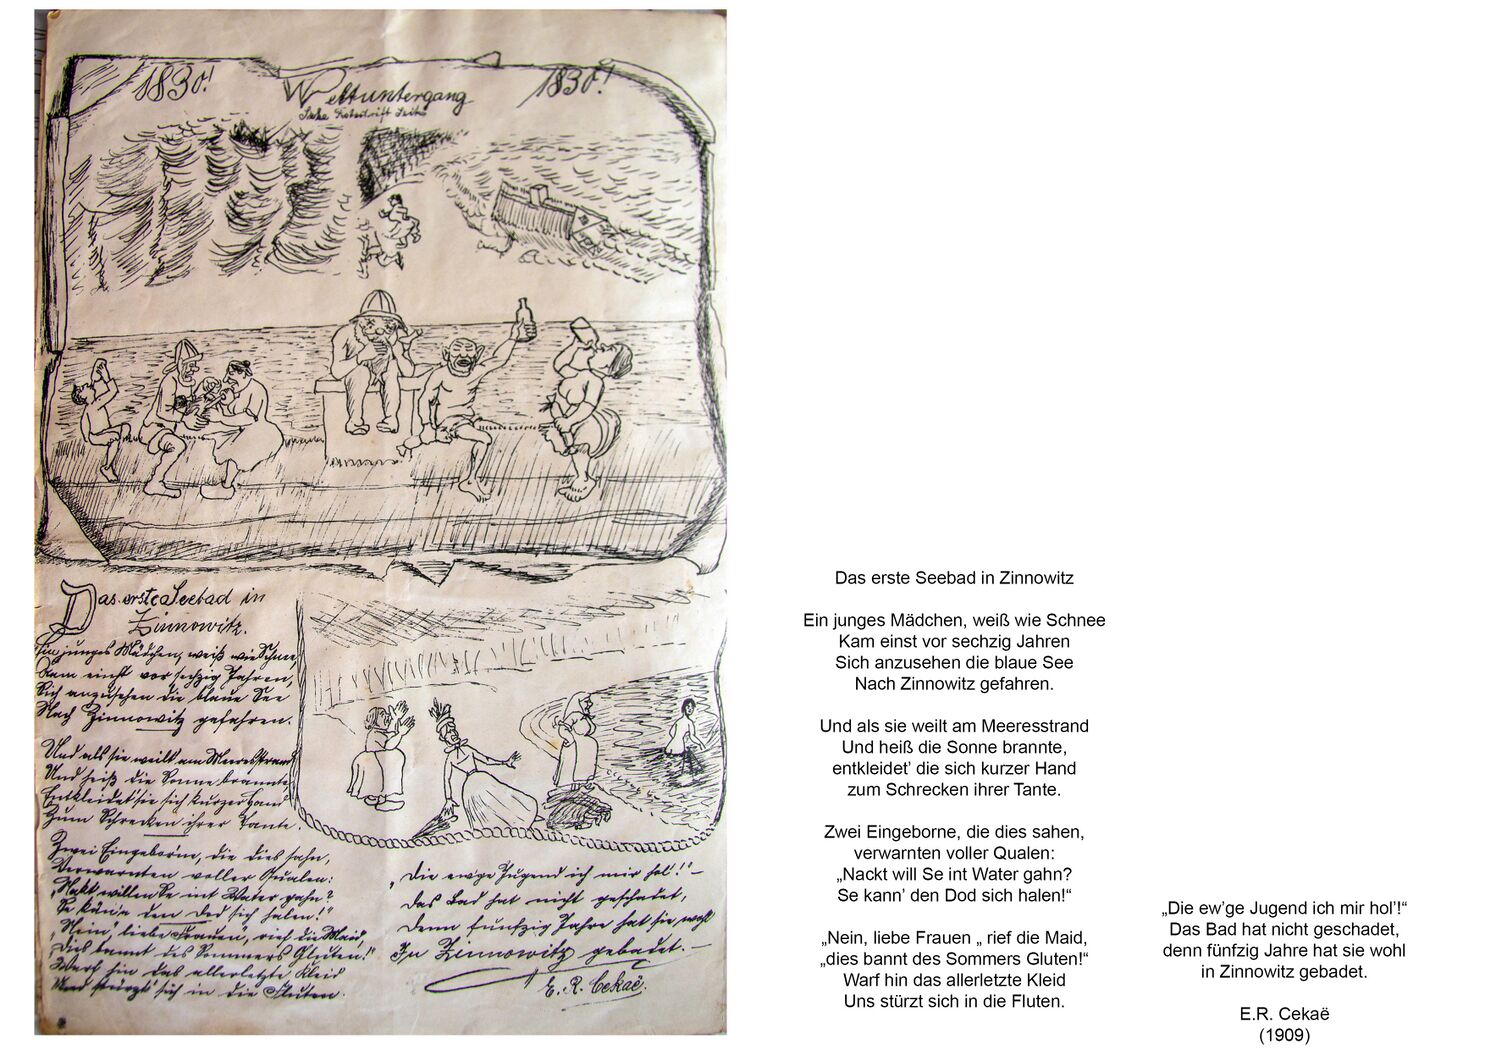 1830!
Weltuntergang
1830!
Siehe Festschrift Seite
Das erste Seebad in
Zinnowitz.
Ein junges Mädchen, weiß wie Schnee
Kam einst vor sechzig Jahren,
Sich anzusehen die blaue See
Nach Zinnowitz gefahren.
Und als sie weilt am Meeresstrand
Und heiß die Sonne brannte,
Entkleidet' sie sich kurzer Hand
Zum Schrecken ihrer Tante.
Zwei Eingeborne, die dies sahn,
Verwarnten voller Qualen:
„Nakt willen Se int Water gahn?
Se kän'n den Dod sich halen!"
„Nein, liebe Frauen", rief die Maid,
„Dies bannt des Sommers Gluten!"
Warf hin das allerletzte Kleid
Und stürzt' sich in die Fluten.
„Die ew'ge Jugend ich mir hol'!" –
Das Bad hat nicht geschadet,
Denn fünfzig Jahre hat sie wohl
In Zinnowitz gebadet. –
E. R. Cekaë.
Das erste Seebad in Zinnowitz
Ein junges Mädchen, weiß wie Schnee
Kam einst vor sechzig Jahren
Sich anzusehen die blaue See
Nach Zinnowitz gefahren.
Und als sie weilt am Meeresstrand
Und heiß die Sonne brannte,
entkleidet’ die sich kurzer Hand
zum Schrecken ihrer Tante.
Zwei Eingeborne, die dies sahen,
verwarnten voller Qualen:
„Nackt will Se int Water gahn?
Se kann’ den Dod sich halen!“
„Nein, liebe Frauen „ rief die Maid,
„dies bannt des Sommers Gluten!“
Warf hin das allerletzte Kleid
Uns stürzt sich in die Fluten.
„Die ew’ge Jugend ich mir hol’!“
Das Bad hat nicht geschadet,
denn fünfzig Jahre hat sie wohl
in Zinnowitz gebadet.
E.R. Cekaë
(1909)